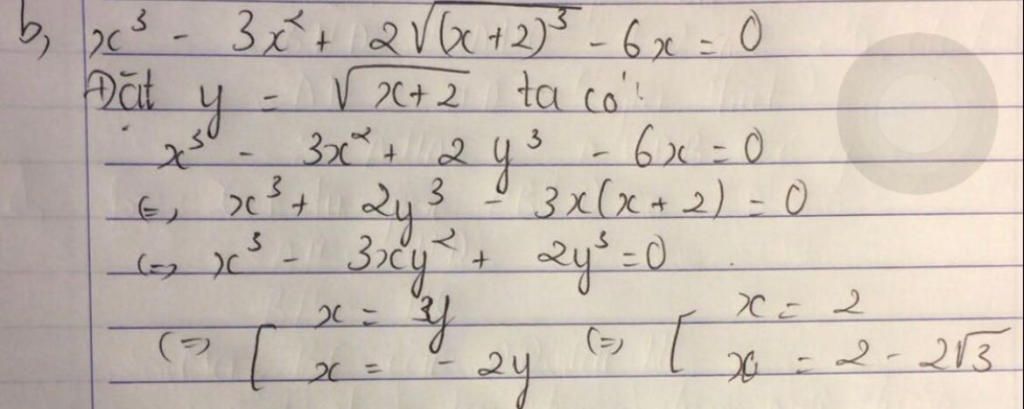 b, x³ - 3x² + 2√(x+2)³ - 6x = 0
Đặt y = √x+2 ta có:
x³ - 3x² + 2y³ - 6x = 0
⇔ x³ + 2y³ - 3x(x+2) = 0
⇔ x³ - 3xy² + 2y³ = 0
⇔ [ x = y ⇔ [ x = 2
x = -2y x = 2 - 2√3